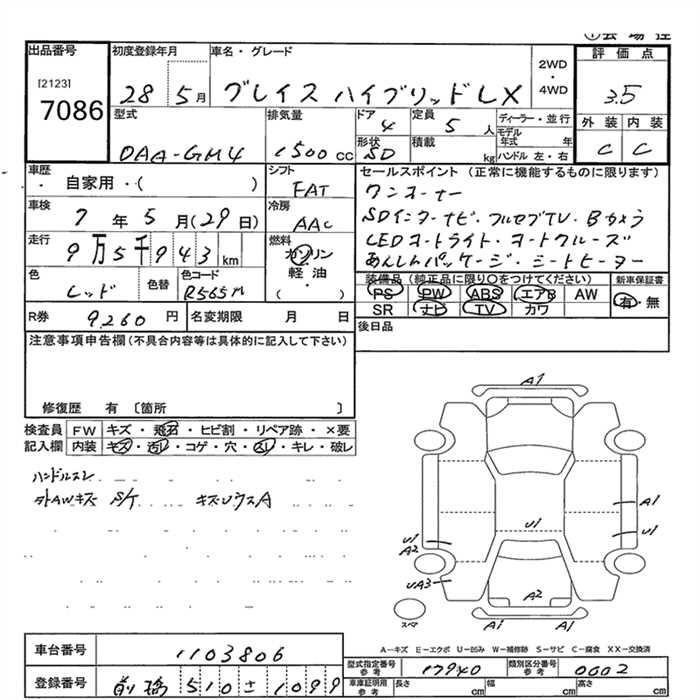 出品番号 初度登録年月 車名・グレード 評価点
[2123]
7086
28 5月 グレイス ハイブリッドLX 2WD・4WD 3.5
型式 排気量 ドア 定員 ディーラー・並行 外装 内装
DAA-GM4 1500cc 4 5人 モデル年式 年 C C
形状 積載 kg ハンドル 左・右
SD
車歴 シフト セールスポイント (正常に機能するものに限ります)
・ 自家用・( ) FAT ワンオーナー
車検 冷房 SDインターナビ・フルセグTV・Bカメラ
7年5月(29日) AAC LEDオートライト・オートクルーズ
走行 燃料 あんしんパッケージ・シートヒーター
9万5千943km ガソリン・軽油・( )
色 色替 色コード 装備品(純正品に限り○をつけてください) 新車保証書
レッド R565M PS PW ABS エアB AW 有・無
SR ナビ TV カワ
R券 9,260円 名変期限 月 日 後日品
注意事項申告欄(不具合内容等は具体的に記入して下さい)
修復歴 有 〔箇所 〕
検査員 FW キズ・飛石・ヒビ割・リペア跡・×要
記入欄 内装 キズ・汚レ・コゲ・穴・スレ・キレ・破レ
ハンドルスレ
外AWキズ S/T キズUウスA
A1
A1
U1
U1
U1
A2
UA3
A2
A1 A1
スペア
A-キズ E-エクボ U-凹み W-補修跡 S-サビ C-腐食 XX-交換済
車台番号 1103806
型式指定番号 参考 17940 類別区分番号 参考 0002
登録番号 前橋 510 さ 1099
車庫証明用 参考 長さ cm 幅 cm 高さ cm